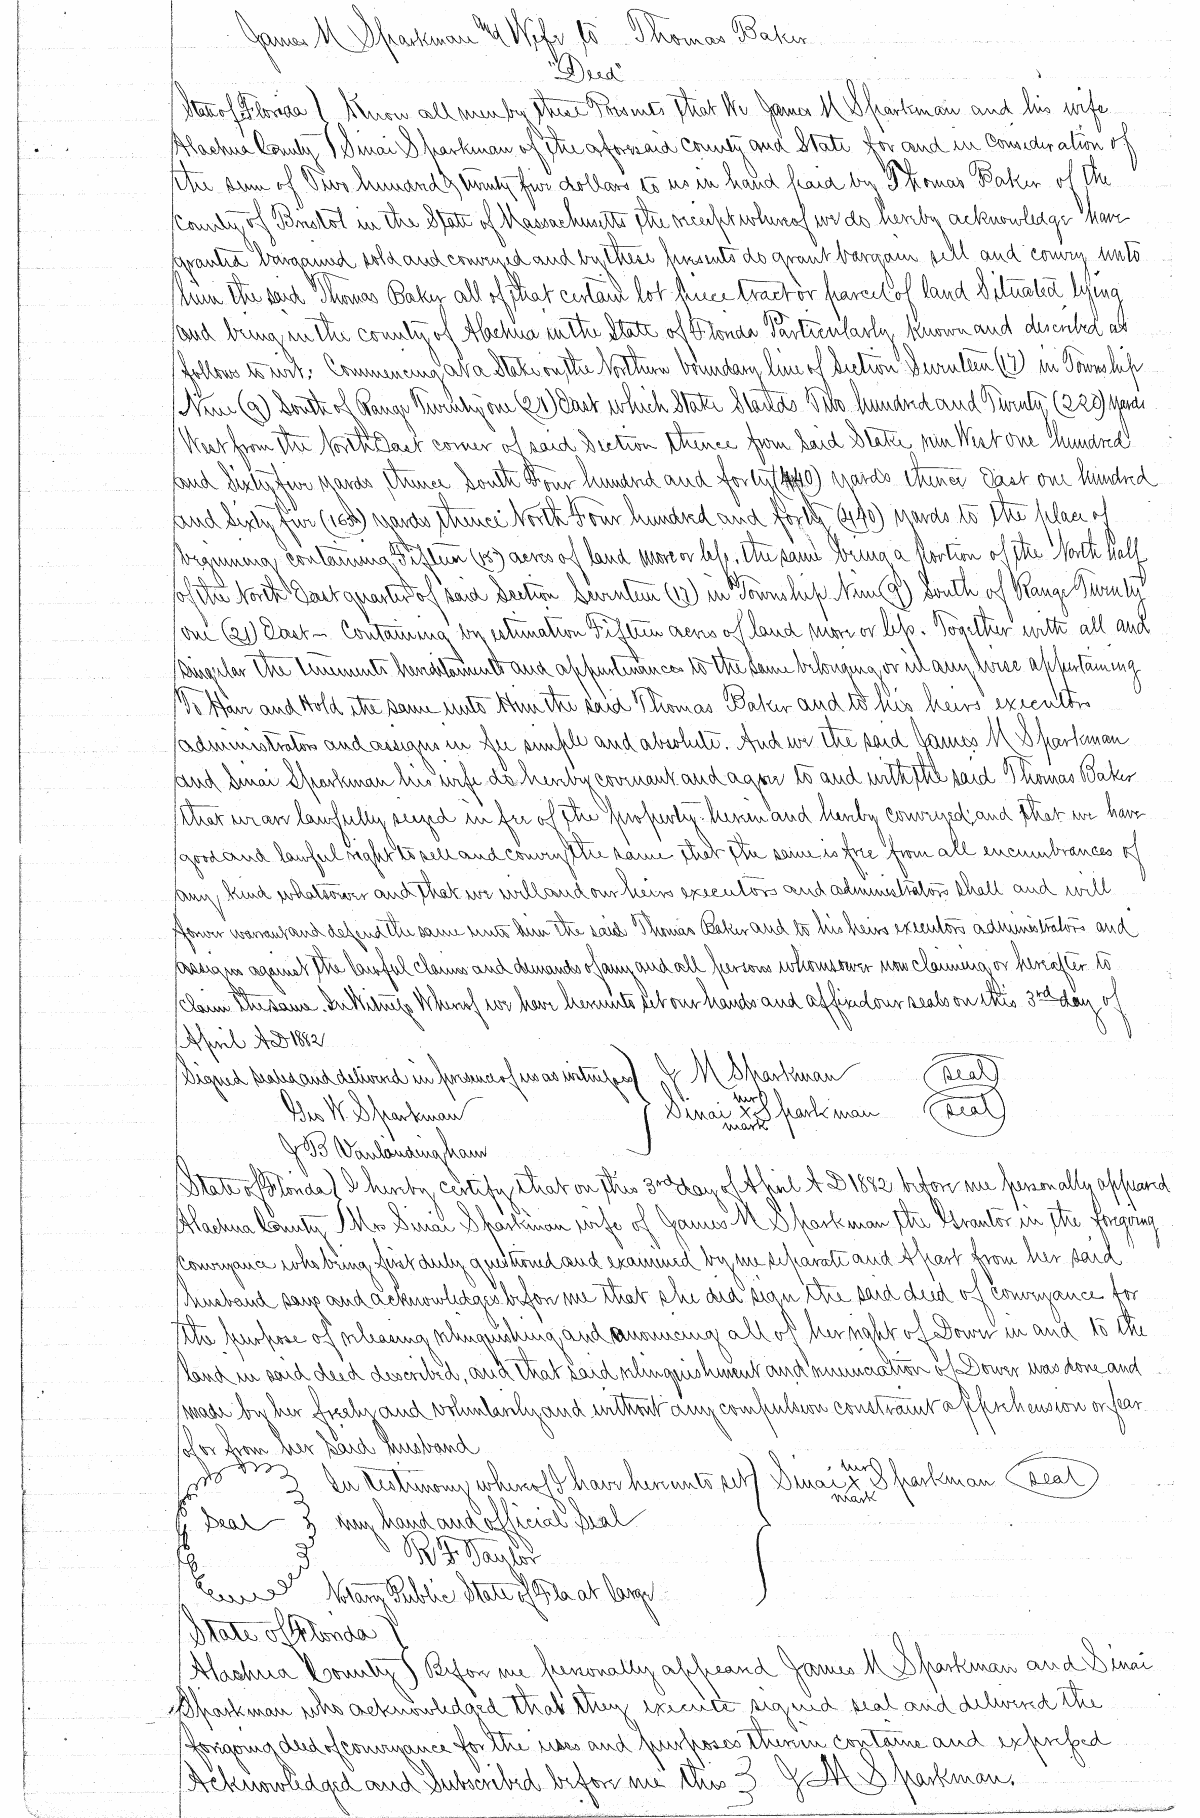 James M Sparkman and Wife to Thomas Baker
"Deed"
State of Florida } Know all men by these Presents that We James M Sparkman and his wife
Alachua County } Sinai Sparkman of the aforesaid county and State for and in Consideration of
the sum of Two hundred & twenty five dollars to us in hand paid by Thomas Baker of the
County of Bristol in the State of Massachusetts the receipt whereof we do hereby acknowledge have
granted bargained sold and conveyed and by these presents do grant bargain sell and convey unto
him the said Thomas Baker all of that certain lot piece tract or parcel of land Situated lying
and being in the county of Alachua in the State of Florida Particularly known and described as
follows to wit: Commencing at a Stake on the Northern boundary line of Section Seventeen (17) in Township
Nine (9) South of Range Twenty one (21) East which Stake Stands Two hundred and Twenty (220) yards
West from the North East corner of said Section thence from Said Stake run West one hundred
and Sixty five yards, thence South Four hundred and forty (440) yards thence East one hundred
and Sixty five (165) yards thence North Four hundred and forty (440) yards to the place of
beginning containing Fifteen (15) acres of land more or less, the same being a portion of the North half
of the North East quarter of said Section Seventeen (17) in Township Nine (9) South of Range Twenty
one (21) East – Containing by estimation Fifteen acres of land more or less. Together with all and
singular the tenements hereditaments and appurtenances to the same belonging or in any wise appertaining
To Have and Hold the same unto Him the said Thomas Baker and to his heirs executors
administrators and assigns in fee simple and absolute. And we the said James M Sparkman
and Sinai Sparkman his wife do hereby covenant and agree to and with the said Thomas Baker
that we are lawfully seized in fee of the property herein and hereby conveyed and that we have
good and lawful right to sell and convey the same that the same is free from all encumbrances of
any kind whatsoever and that we will and our heirs executors and administrators shall and will
forever warrant and defend the same unto him the said Thomas Baker and to his heirs executors administrators and
assigns against the lawful claims and demands of any and all persons whomsoever now claiming or hereafter to
claim the same. In Witness Whereof we have hereunto set our hands and affixed our seals on this 3rd day of
April A D 1882
Signed sealed and delivered in presence of us as witnesses } J M Sparkman (seal)
Geo W Sparkman } Sinai her x mark Sparkman (seal)
J B Vanlandingham
State of Florida } I hereby certify that on this 3rd day of April A D 1882 before me personally appeared
Alachua County } Mrs Sinai Sparkman wife of James M Sparkman the Grantor in the foregoing
conveyance who being first duly questioned and examined by me separate and Apart from her said
husband says and acknowledges before me that she did sign the said deed of conveyance for
the purpose of releasing relinquishing and renouncing all of her right of Dower in and to the
land in said deed described, and that said relinquishment and renunciation of Dower was done and
made by her freely and voluntarily and without any compulsion constraint apprehension or fear
of or from her said husband
In testimony whereof I have hereunto set } Sinai her x mark Sparkman (seal)
Seal my hand and official Seal
R F Taylor
Notary Public State of Fla at large
State of Florida }
Alachua County } Before me personally appeared James M Sparkman and Sinai
Sparkman who acknowledged that they execute signed seal and delivered the
foregoing deed of conveyance for the uses and purposes therein containe and expressed
Acknowledged and Subscribed before me this } J M Sparkman.